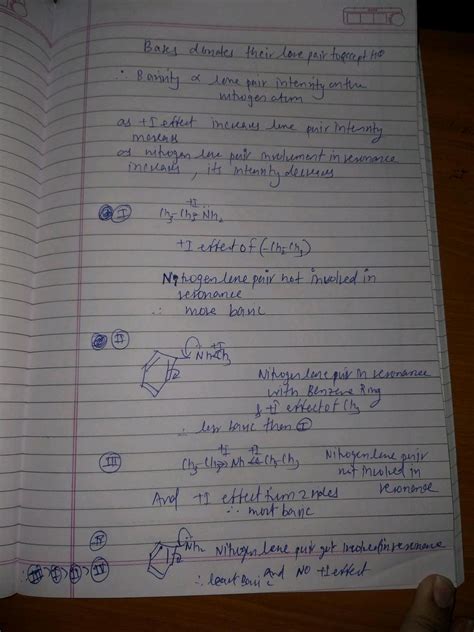 Bases donates their lone pair to accept H⊕
∴ Basicity ∝ lone pair intensity on the
nitrogen atom
as +I effect increases lone pair intensity
increases
as nitrogen lone pair involvement in resonance
increases, its intensity decreases
I CH₃-CH₂ N̈H₂
+I
+I effect of (-CH₂CH₃)
Nitrogen lone pair not involved in
resonance
∴ more basic
II NH-CH₃
+I
Nitrogen lone pair in resonance
with Benzene Ring
& +I effect of CH₃
∴ less basic than I
III CH₃-CH₂ NH CH₂-CH₃
+I +I
Nitrogen lone pair
not involved in
resonance
And +I effect from 2 sides
∴ most basic
IV NH₂ Nitrogen lone pair get involved in resonance
And NO +I effect
∴ least Basic
III > I > II > IV